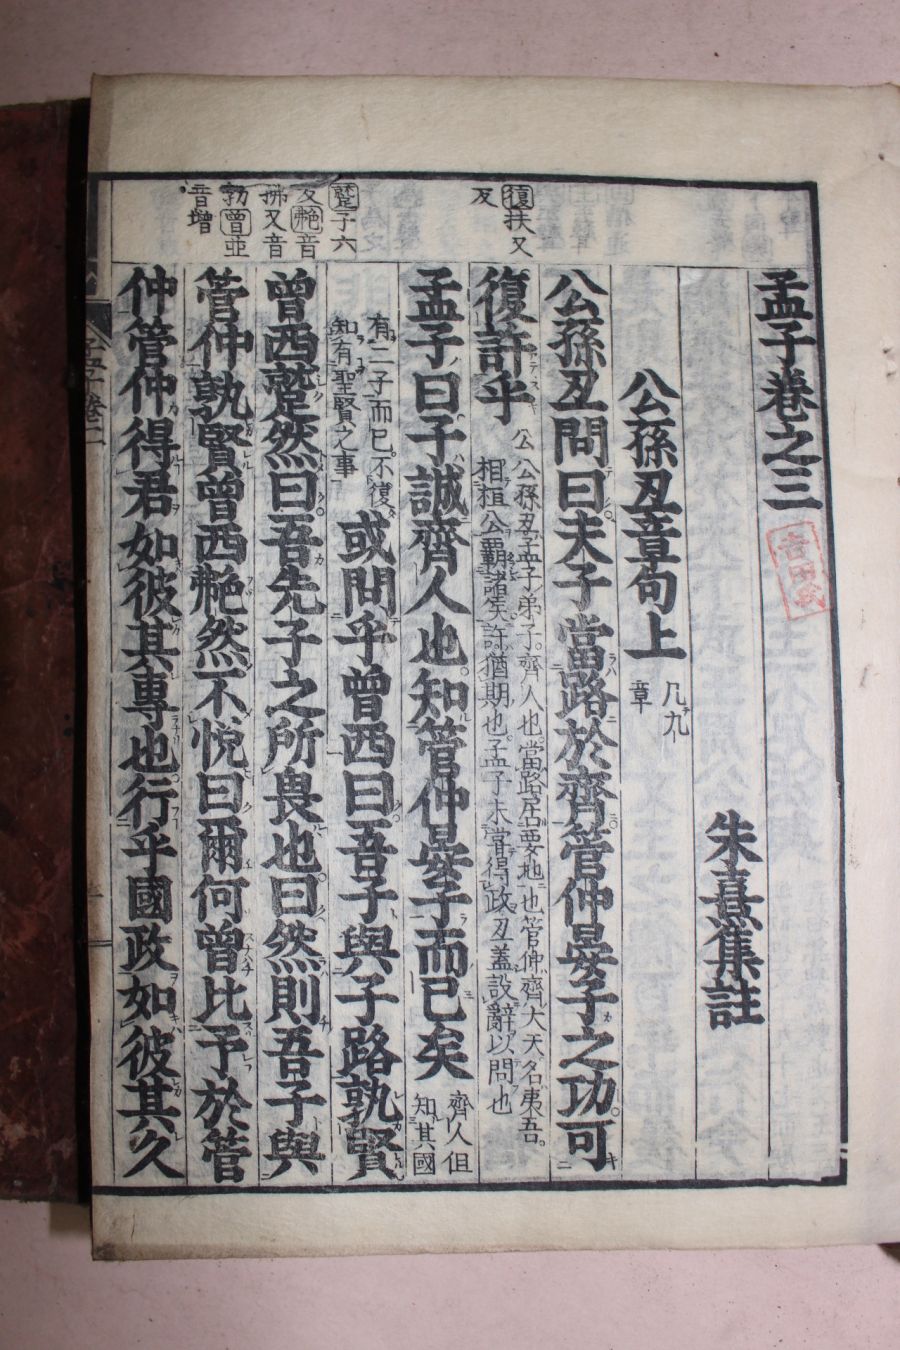 孟子卷之三
朱熹集註
公孫丑章句上
凡九
章
公孫丑問曰夫子當路於齊管仲晏子之功可
復許乎
公孫丑孟子弟子齊人也當路居要地也管仲齊大夫名夷吾
相桓公霸諸侯許猶期也孟子未嘗得政丑蓋設辭以問也
孟子曰子誠齊人也知管仲晏子而已矣
齊人但
知其國
有二子而已不復
知有聖賢之事
或問乎曾西曰吾子與子路孰賢
曾西蹵然曰吾先子之所畏也曰然則吾子與
管仲孰賢曾西艴然不悅曰爾何曾比予於管
仲管仲得君如彼其專也行乎國政如彼其久
復扶又
反
蹵子六
反艴音
拂又音
勃曾並
音增